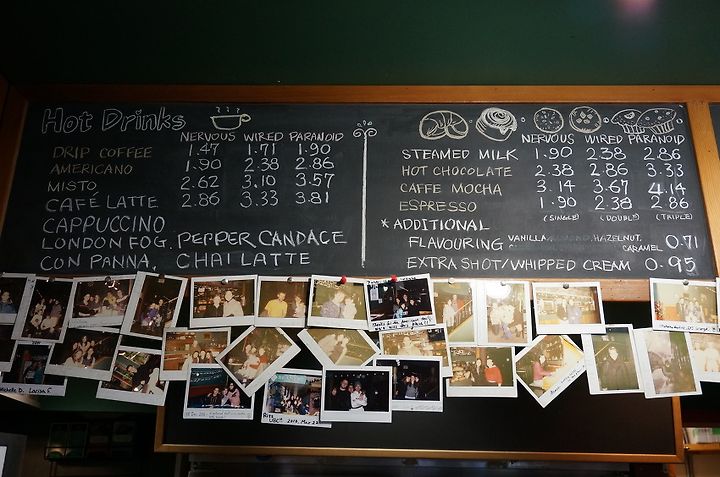 Hot Drinks
NERVOUS WIRED PARANOID
DRIP COFFEE 1.47 1.71 1.90
AMERICANO 1.90 2.38 2.86
MISTO 2.62 3.10 3.57
CAFÉ LATTE 2.86 3.33 3.81
CAPPUCCINO
LONDON FOG. PEPPER CANDACE
CON PANNA. CHAI LATTE
NERVOUS WIRED PARANOID
STEAMED MILK 1.90 2.38 2.86
HOT CHOCOLATE 2.38 2.86 3.33
CAFFE MOCHA 3.14 3.67 4.14
ESPRESSO 1.90 2.38 2.86
(SINGLE) (DOUBLE) (TRIPLE)
* ADDITIONAL
FLAVOURING VANILLA, HAZELNUT, CARAMEL 0.71
EXTRA SHOT/WHIPPED CREAM 0.95